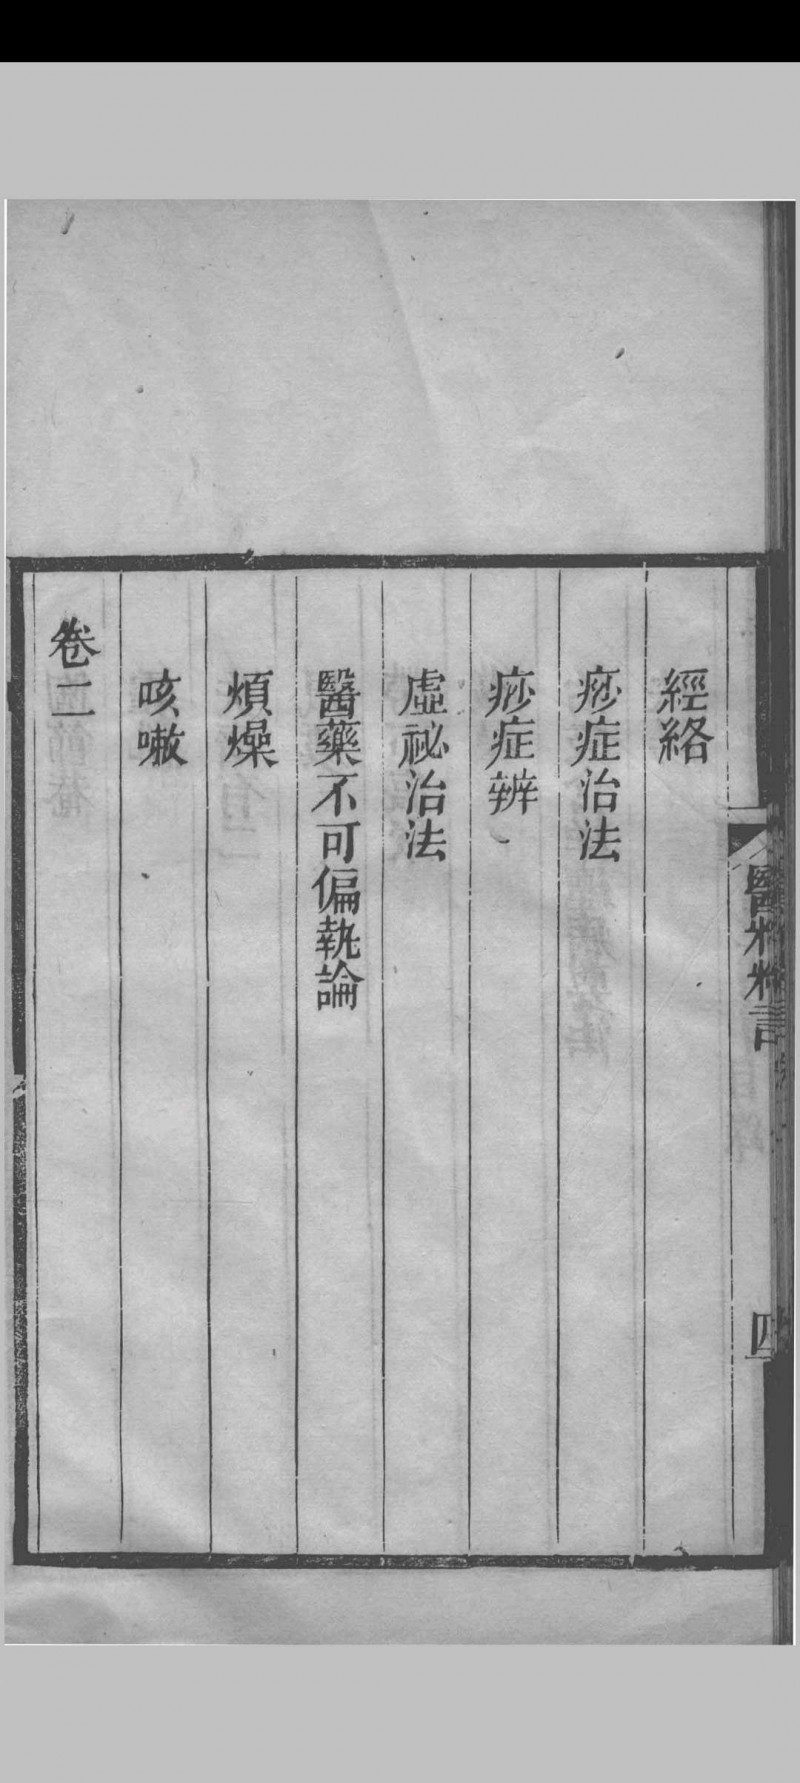 經絡
痧症治法
痧症辨
虛祕治法
醫藥不可偏執論
煩燥
咳嗽
卷二
四